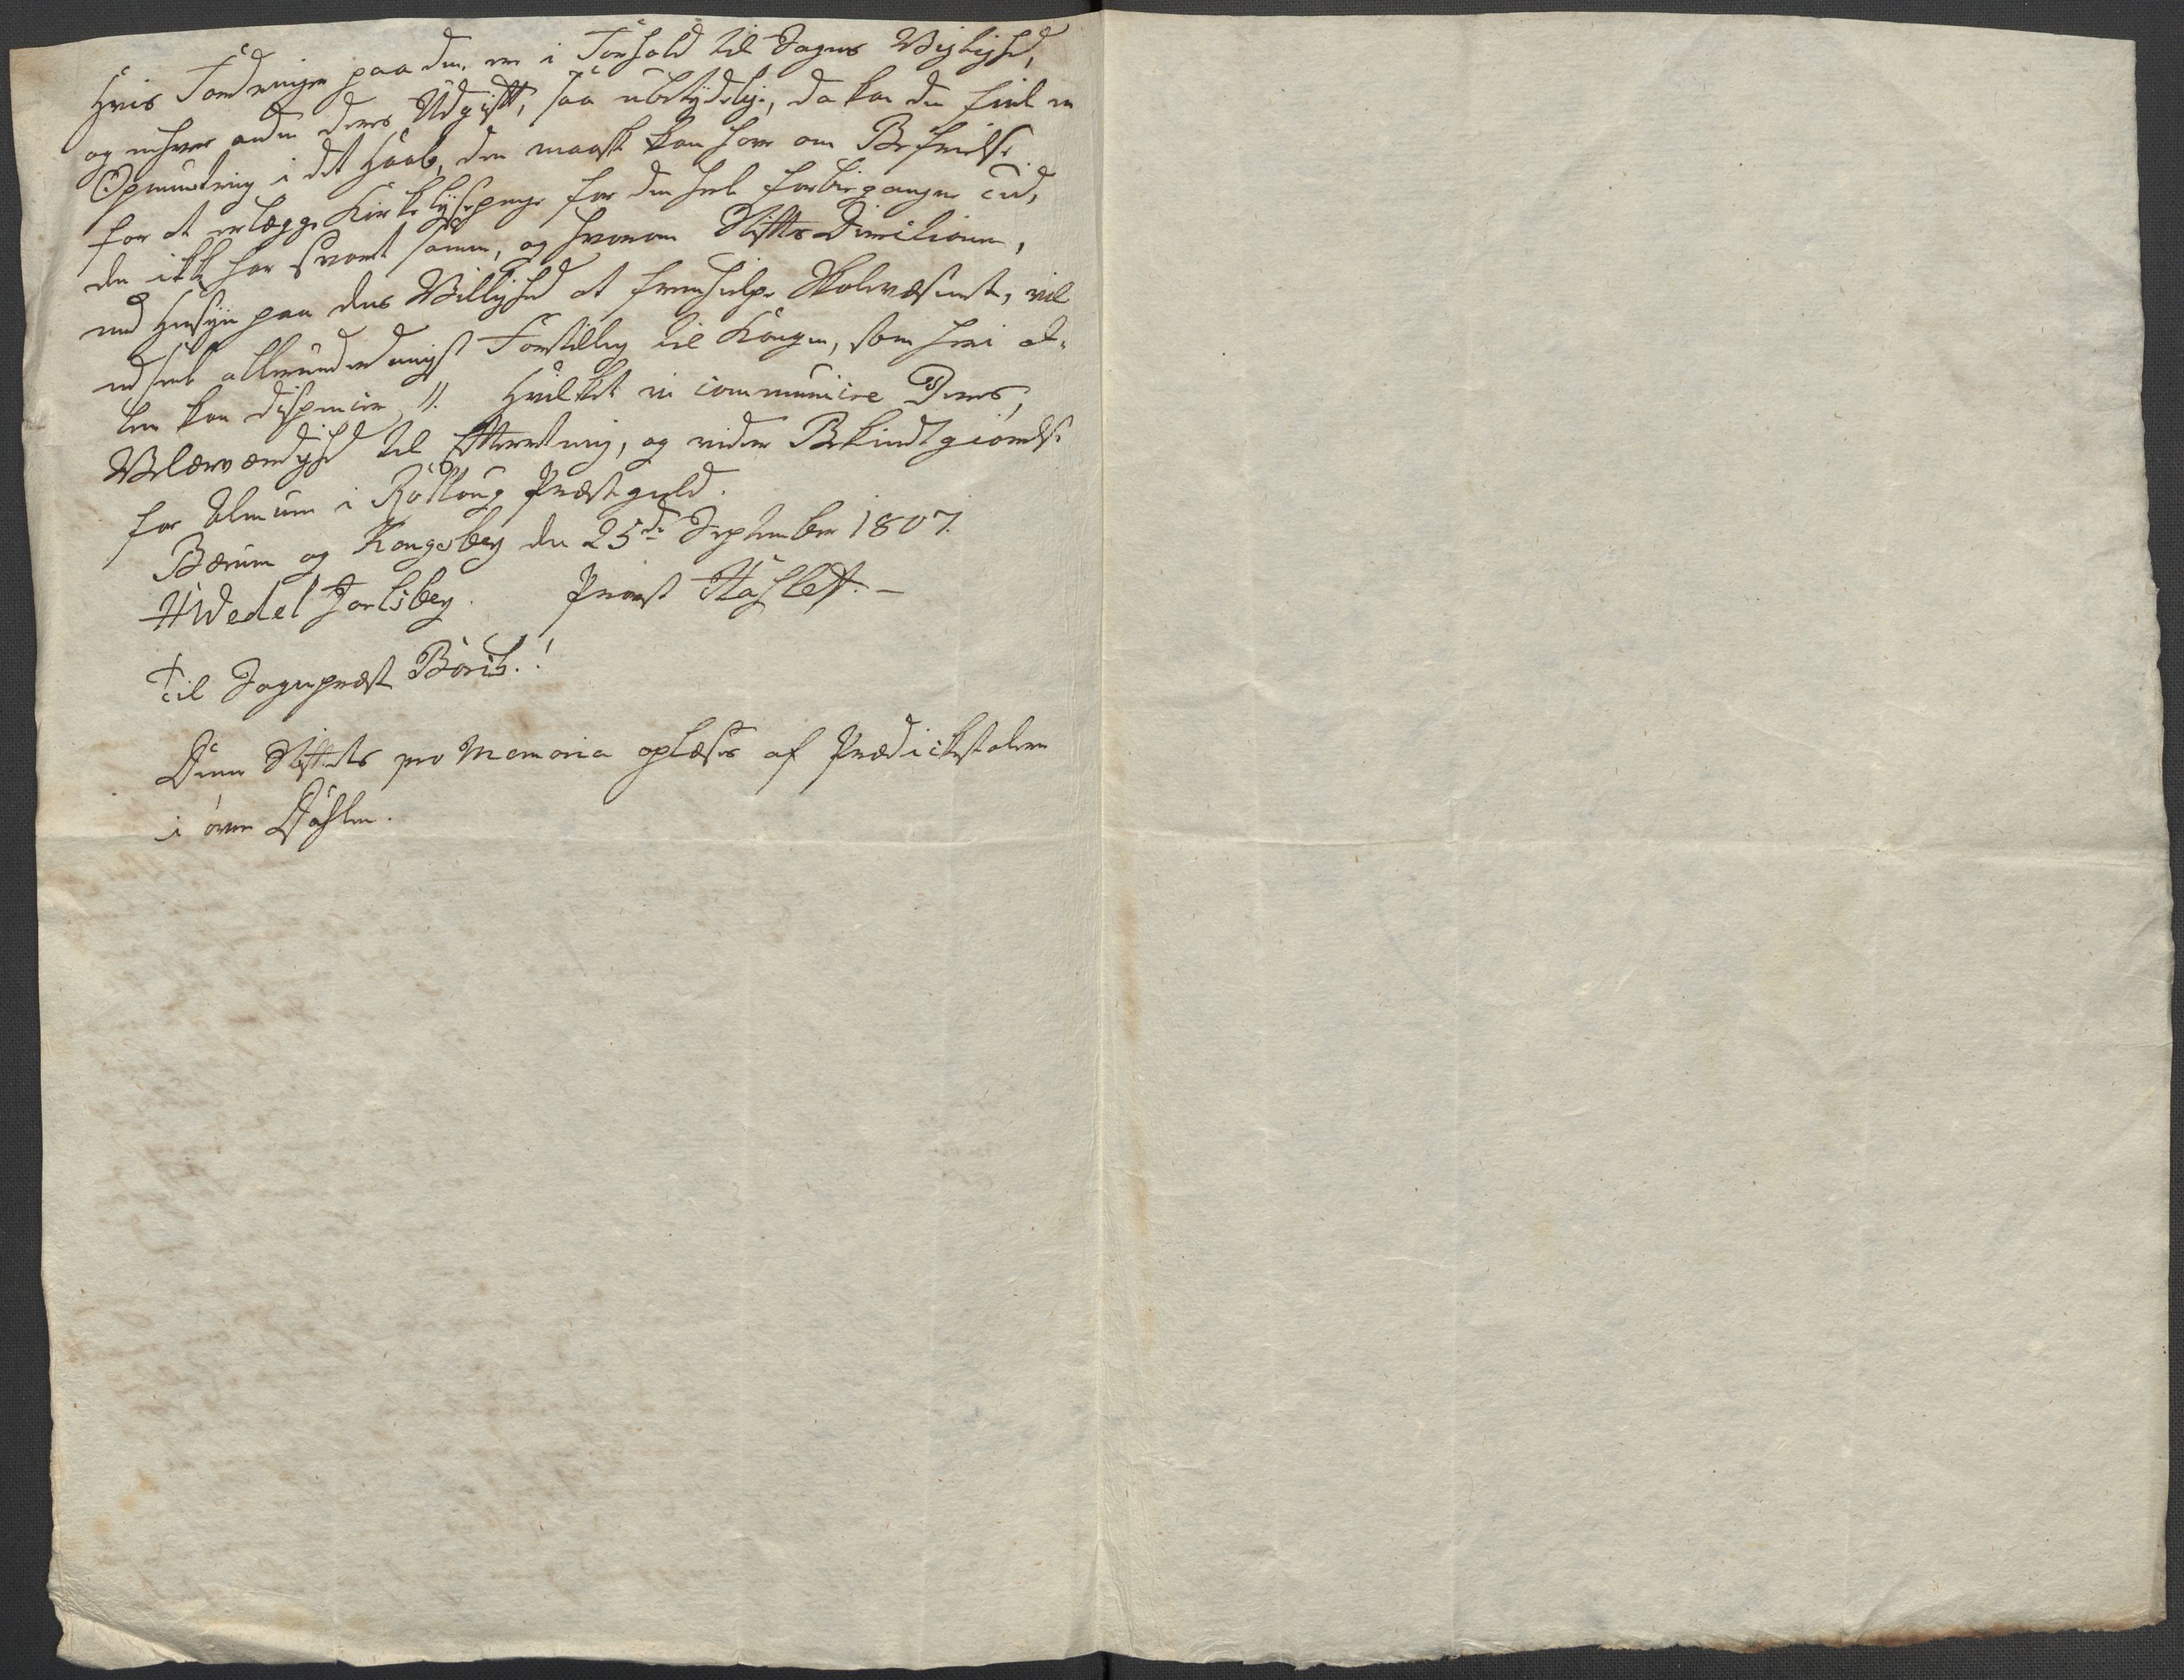 Hvis Fordringen paa dem er i Forhold til Sagens Vigtighed,
og enhver anden deres Udgift, saa ubetydelig, da kan de finde en
Opmuntring i det Haab, den maaske kan have om Befrielse
for at erlægge Kirke lysepenge for den hele forbigangne Tid,
de ikke har svaret samme, og hvorom Stifts Directionen,
med Hensyn paa deres Villighed at fremhielpe Skolevæsenet, vil
indsende allerunderdanigst Forestilling til Kongen, som heri al-
lene kan dispencere //. Hvilket vi communicere Deres
Velærværdighed til Efterretning, og videre Bekiendtgiørelse
for Almuen i Rollaug Præstegield.
Bærum og Kongsberg den 25de September 1807.
HWedel Jarlsberg. Provst Stahlett. –
Til Sognepræst Börch.!
Denne Stiftets pro Memoria oplæses af Prædickestolen
i øvre Dahlen.